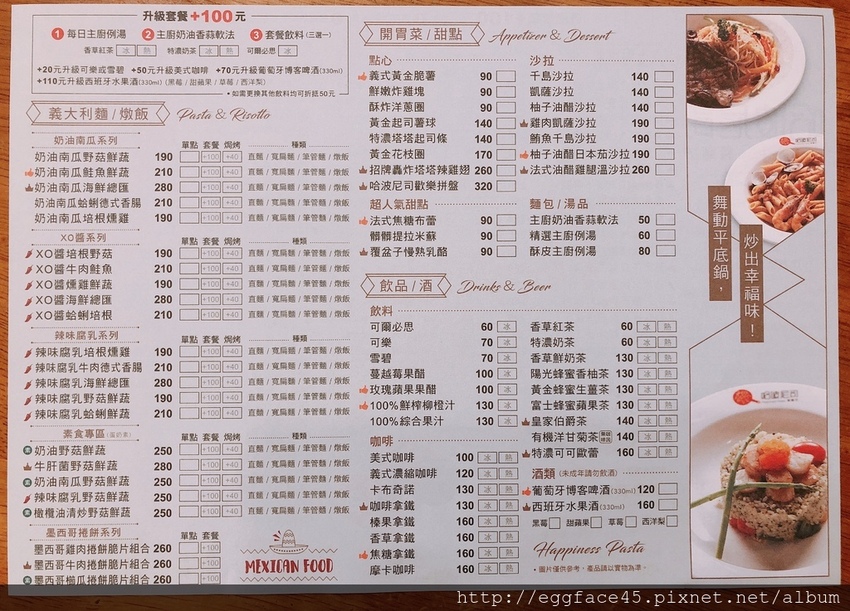 升級套餐+100元
1 每日主廚例湯 2 主廚奶油香蒜軟法 3 套餐飲料(三選一)
香草紅茶 冰 熱 特濃奶茶 冰 熱 可爾必思 冰
+20元升級可樂或雪碧 +50元升級美式咖啡 +70元升級葡萄牙博客啤酒(330ml)
+110元升級西班牙水果酒(330ml)(黑莓/甜蘋果/草莓/西洋梨)
•如需更換其他飲料均可折抵50元
義大利麵/燉飯 Pasta & Risotto
奶油南瓜系列 單點 套餐 焗烤 種類
奶油南瓜野菇鮮蔬 190 +100 +40 直麵/寬扁麵/筆管麵/燉飯
奶油南瓜鮭魚鮮蔬 210 +100 +40 直麵/寬扁麵/筆管麵/燉飯
奶油南瓜海鮮總匯 280 +100 +40 直麵/寬扁麵/筆管麵/燉飯
奶油南瓜蛤蜊德式香腸 210 +100 +40 直麵/寬扁麵/筆管麵/燉飯
奶油南瓜培根燻雞 190 +100 +40 直麵/寬扁麵/筆管麵/燉飯
XO醬系列 單點 套餐 焗烤 種類
XO醬培根野菇 190 +100 +40 直麵/寬扁麵/筆管麵/燉飯
XO醬牛肉鮭魚 210 +100 +40 直麵/寬扁麵/筆管麵/燉飯
XO醬燻雞鮮蔬 190 +100 +40 直麵/寬扁麵/筆管麵/燉飯
XO醬海鮮總匯 280 +100 +40 直麵/寬扁麵/筆管麵/燉飯
XO醬蛤蜊培根 210 +100 +40 直麵/寬扁麵/筆管麵/燉飯
辣味腐乳系列 單點 套餐 焗烤 種類
辣味腐乳培根燻雞 190 +100 +40 直麵/寬扁麵/筆管麵/燉飯
辣味腐乳牛肉德式香腸 210 +100 +40 直麵/寬扁麵/筆管麵/燉飯
辣味腐乳海鮮總匯 280 +100 +40 直麵/寬扁麵/筆管麵/燉飯
辣味腐乳野菇鮮蔬 190 +100 +40 直麵/寬扁麵/筆管麵/燉飯
辣味腐乳蛤蜊鮮蔬 210 +100 +40 直麵/寬扁麵/筆管麵/燉飯
素食專區(蛋奶素) 單點 套餐 焗烤 種類
奶油野菇鮮蔬 250 +100 +40 直麵/寬扁麵/筆管麵/燉飯
牛肝菌野菇鮮蔬 280 +100 +40 直麵/寬扁麵/筆管麵/燉飯
奶油南瓜野菇鮮蔬 250 +100 +40 直麵/寬扁麵/筆管麵/燉飯
辣味腐乳野菇鮮蔬 250 +100 +40 直麵/寬扁麵/筆管麵/燉飯
橄欖油清炒野菇鮮蔬 250 +100 +40 直麵/寬扁麵/筆管麵/燉飯
墨西哥捲餅系列 單點 套餐
墨西哥雞肉捲餅脆片組合 260 +100
墨西哥牛肉捲餅脆片組合 260 +100
墨西哥櫛瓜捲餅脆片組合 260 +100
MEXICAN FOOD
開胃菜/甜點 Appetizer & Dessert
點心
義式黃金脆薯 90
鮮嫩炸雞塊 90
酥炸洋蔥圈 90
黃金起司薯球 140
特濃塔塔起司條 140
黃金花枝圈 170
招牌轟炸塔塔辣雞翅 260
哈波尼司歡樂拼盤 320
沙拉
千島沙拉 140
凱薩沙拉 140
柚子油醋沙拉 140
雞肉凱薩沙拉 190
鮪魚千島沙拉 190
柚子油醋日本茄沙拉 190
法式油醋雞腿溫沙拉 260
超人氣甜點
法式焦糖布蕾 90
髒髒提拉米蘇 90
覆盆子慢熟乳酪 90
麵包/湯品
主廚奶油香蒜軟法 50
精選主廚例湯 60
酥皮主廚例湯 80
飲品/酒 Drinks & Beer
飲料
可爾必思 60 冰
可樂 70 冰
雪碧 70 冰
蔓越莓果醋 100 冰
玫瑰蘋果果醋 100 冰
100%鮮榨柳橙汁 130 冰
100%綜合果汁 130 冰
香草紅茶 60 冰 熱
特濃奶茶 60 冰 熱
香草鮮奶茶 130 冰 熱
陽光蜂蜜香柚茶 130 冰 熱
黃金蜂蜜生薑茶 130 冰 熱
富士蜂蜜蘋果茶 130 冰 熱
皇家伯爵茶 140 冰 熱
有機洋甘菊茶 140 冰 熱
特濃可可歐蕾 160 冰 熱
咖啡
美式咖啡 100 冰 熱
義式濃縮咖啡 120 熱
卡布奇諾 130 冰 熱
咖啡拿鐵 130 冰 熱
榛果拿鐵 160 冰 熱
香草拿鐵 160 冰 熱
焦糖拿鐵 160 冰 熱
摩卡咖啡 160 冰 熱
酒類(未成年請勿飲酒)
葡萄牙博客啤酒(330ml) 120
西班牙水果酒(330ml) 160
黑莓 甜蘋果 草莓 西洋梨
Happiness Pasta
•圖片僅供參考,產品請以實物為準。
舞動平底鍋,
炒出幸福味!
http://eggface45.pixnet.net/album